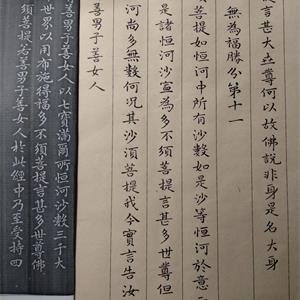 提言甚大世尊何以故佛說非身是名大身
無為福勝分第十一
須菩提如恒河中所有沙數如是沙等恒河於意
是諸恒河沙寧為多不須菩提言甚多世尊但
河尚多無數何況其沙須菩提我今實言告汝
善男子善女人
善男子善女人以七寶滿爾所恒河沙數三千大
世界以用布施得福多不須菩提言甚多世尊佛
須菩提若善男子善女人於此經中乃至受持四